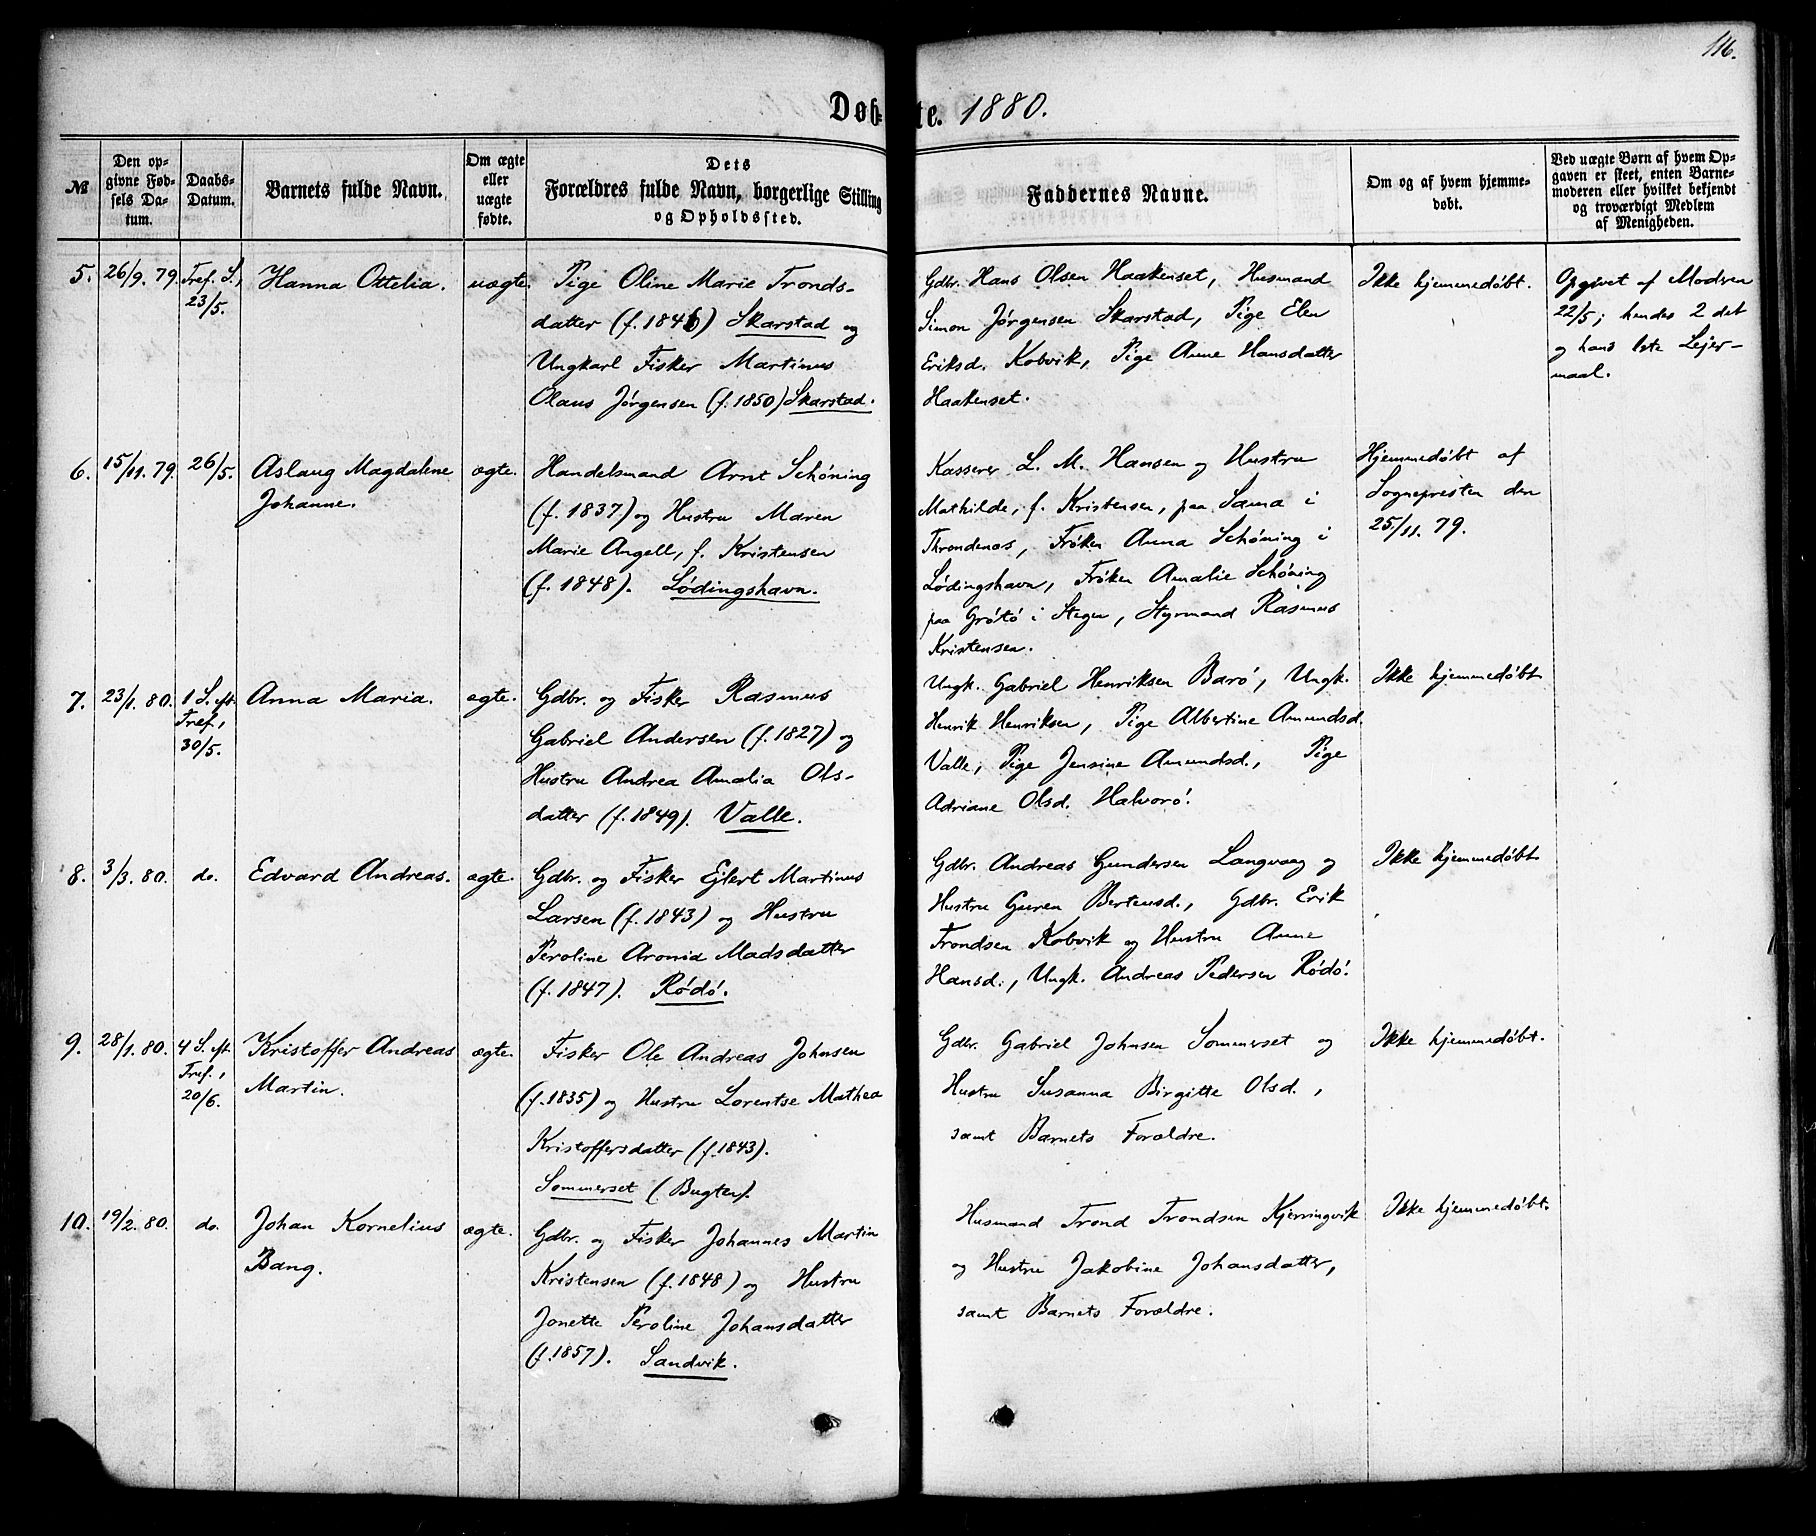 116.
Døb- te. 1880.
№
Den op-
givne Fød-
sels Da-
tum.
Daabs-
Datum.
Barnets fulde Navn.
Om ægte
eller
uægte
fødte.
Dets
Forældres fulde Navn, borgerlige Stilling
og Opholdssted.
Faddernes Navne.
Om og af hvem hjemme-
døbt.
Ved uægte Børn af hvem Op-
gaven er skeet, enten Barne-
moderen eller hvilket bekjendt
og troværdigt Medlem
af Menigheden.
5.
26/9. 79.
Tref. S.,
23/5.
Hanna Ottelia.
uægte.
Pige Oline Marie Tronds-
datter (f. 1846) Skarstad og
Ungkarl Fisker Martinus
Olaus Jørgensen (f. 1850) Skarstad.
Gdbr. Hans Olsen Haakenset, Husmand
Simon Jørgensen Skarstad, Pige Elen
Eriksd. Kobvik, Pige Anne Hansdatter
Haakenset.
Ikke hjemmedøbt.
Opgivet af Modren
22/5; hendes 2det
og hans 1ste Lejer-
maal.
6.
15/11. 79.
26/5.
Aslaug Magdalene
Johanne.
ægte.
Handelsmand Arnt Schøning
(f. 1837) og Hustru Maren
Marie Angell, f. Kristensen
(f. 1848). Lødingshavn.
Kasserer L. M. Hansen og Hustru
Mathilde, f. Kristensen, paa Sama i
Throndenæs, Frøken Anna Schøning i
Lødingshavn, Frøken Amalie Schøning
paa Grøtø i Stegen, Styrmand Rasmus
Kristensen.
Hjemmedøbt af
Sognepresten den
25/11. 79.
7.
23/1. 80.
1 S. eft.
Tref.,
30/5.
Anna Maria.
ægte.
Gdbr. og Fisker Rasmus
Gabriel Andersen (f. 1827) og
Hustru Andrea Amalia Ols-
datter (f. 1849). Valle.
Ungk. Gabriel Henriksen Barø, Ungk.
Henrik Henriksen, Pige Albertine Amundsd.
Valle, Pige Jensine Amundsd., Pige
Adriane Olsd. Halvorø.
Ikke hjemmedøbt.
8.
3/3. 80.
do.
Edvard Andreas.
ægte.
Gdbr. og Fisker Ejlert Martinus
Larsen (f. 1843) og Hustru
Peroline Aronia Madsdatter
(f. 1847). Rødø.
Gdbr. Andreas Gundersen Langvaag og
Hustru Guren Bertensd., Gdbr. Erik
Trondsen Kobvik og Hustru Anne
Hansd., Ungk. Andreas Pedersen Rødø.
Ikke hjemmedøbt.
9.
28/1. 80.
4 S. eft.
Tref.,
20/6.
Kristoffer Andreas
Martin.
ægte.
Fisker Ole Andreas Johnsen
(f. 1835) og Hustru Lorentse Mathea
Kristoffersdatter (f. 1843).
Sommerset (Bugten).
Gdbr. Gabriel Johnsen Sommerset og
Hustru Susanna Birgitte Olsd.,
samt Barnets Forældre.
Ikke hjemmedøbt.
10.
19/2. 80.
do.
Johan Kornelius
Bang.
ægte.
Gdbr. og Fisker Johannes Martin
Kristensen (f. 1848) og Hustru
Jonette Peroline Johansdatter
(f. 1857). Sandvik.
Husmand Trond Trondsen Kjerringvik
og Hustru Jakobine Johansdatter,
samt Barnets Forældre.
Ikke hjemmedøbt.